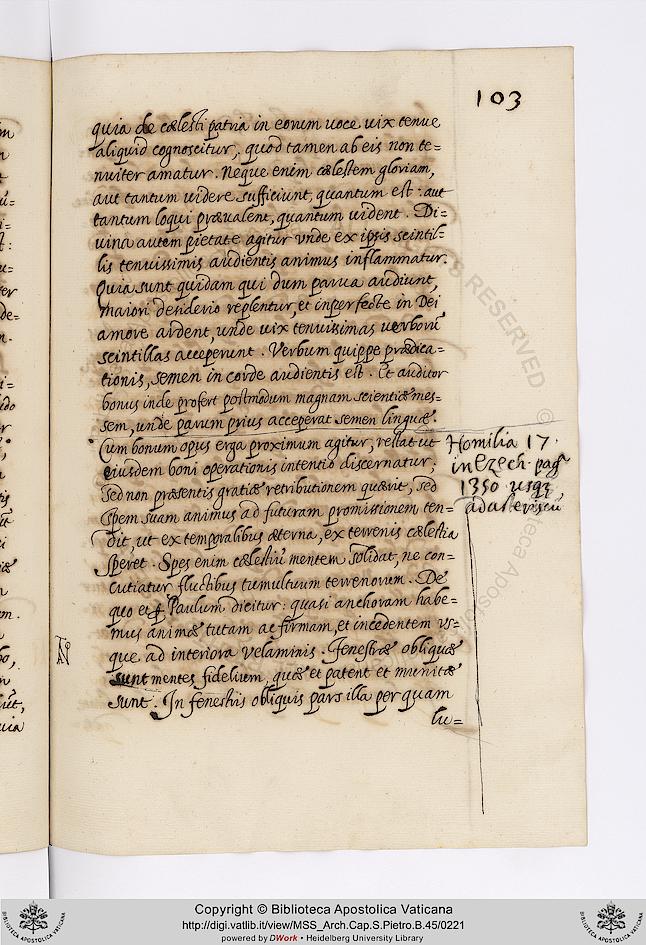 103
quia de cælesti patria in eorum uoce uix tenue
aliquid cognoscitur, quod tamen ab eis non te=
nuiter amatur. Neque enim cælestem gloriam,
aut tantum uidere sufficiunt, quantum est: aut
tantum loqui præualent, quantum uident. Di=
uina autem pietate agitur vnde ex ipsis scintil=
lis tenuissimis audientis animus inflammatur.
Quia sunt quidam qui dum parua audiunt,
maiori desiderio replentur, et inperfecte in Dei
amore ardent, unde vix tenuissimas uerborũ
scintillas acceperunt. Verbum quippe prædica=
tionis, semen in corde audientis est. Et auditor
bonus inde profert postmodum magnam scientiæ mes=
sem, unde parum prius acceperat semen linguæ.
Cum bonum opus erga proximum agitur, restat ut
eiusdem boni operationis intentio discernatur,
sed non præsentis gratiæ retributionem quærit, sed
spem suam animus ad futuram promissionem ten=
dit, ut ex temporalibus æterna, ex terrenis cælestia
speret. Spes enim cælestiũ mentem solidat, ne con=
cutiatur fluctibus tumultuum terrenorum. De
quo et Paulum dicitur: quasi anchoram habe=
mus animæ tutam ac firmam, et incedentem vs=
que ad interiora velaminis. Fenestræ obliquæ
sunt mentes fidelium, quæ et patent et munitæ
sunt. In fenestris obliquis pars illa per quam
lu=
Homilia 17.
in Ezech. pag.
1350 usq3
ad
Copyright © Biblioteca Apostolica Vaticana
http://digi.vatlib.it/view/MSS_Arch.Cap.S.Pietro.B.45/0221
powered by DWork • Heidelberg University Library